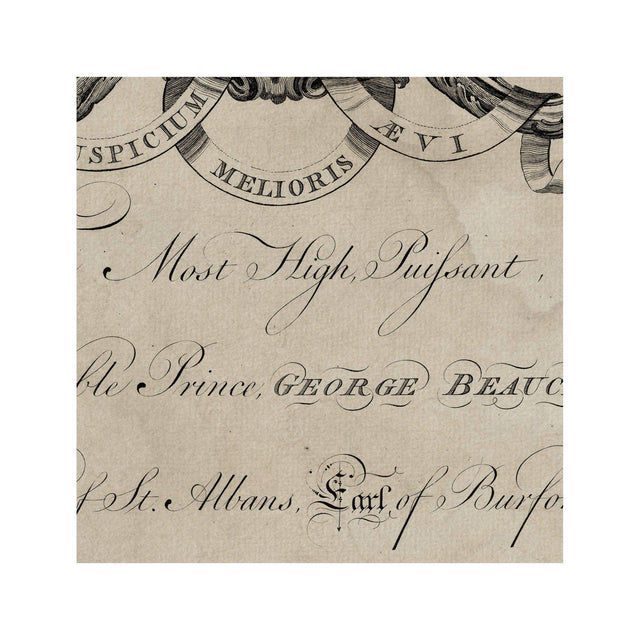 USPICIUM MELIORIS ÆVI
Most High, Puiſsant,
ble Prince, GEORGE BEAUC
of St. Albans, Earl, of Burfo